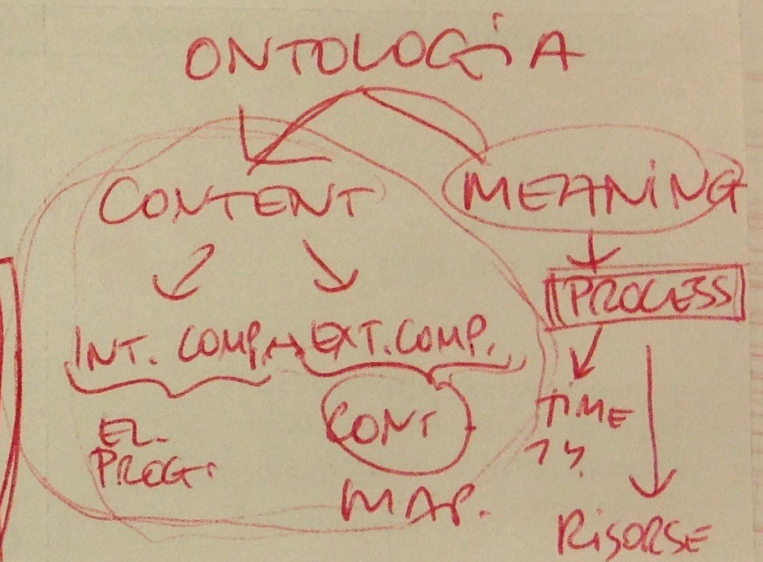 ONTOLOGiA
CONTENT MEANiNG
PROCESS
INT. COMP. EXT. COMP.
EL. PROG.
CONT
MAP.
TiME
RiSORSE